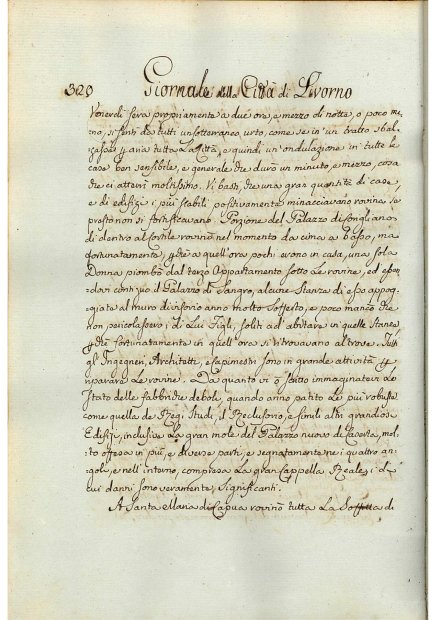 320 Giornale della Città di Livorno
Venerdi sera propriamente a due ore, e mezzo di notte, o poco me,,
no, si sentì da tutti un sotterraneo urto, come se in un tratto sbal,,
zasse p aria tutta la Città, e quindi un'ondulazione in tutte le
case ben sensibile, e generale che durò un minuto, e mezzo, cosa
che ci atterrì moltissimo. Vi basti, che una gran quantità di case,
e di edifizi i più stabili positivamente minacciavano rovina se
presto non si fortificavano. Porzione del Palazzo di
di dentro al Cortile rovinò nel momento da cima a basso, ma
fortunatamente, p che a quell'ora pochi erono in casa, una sola
Donna piombò dal terzo Appartamento sotto le rovine, ed essen,,
dovi contiguo il Palazzo di Sangro, alcune Stanze di esso appog,,
giate al muro divisorio anno molto Sofferto, e poco mancò che
non pericolassero i di Lui Figli, soliti ad abitare in quelle Stanze
p che fortunatamente in quell'ora si ritrovavano altrove. Tutti
gl'Ingegneri, Architetti, e Capimastri sono in grande attività p
riparare le rovine. Da quanto vi ò scritto immaginatevi lo
stato delle fabbriche deboli, quando anno patito le più robuste
come quella de Regj Studi, il Reclusorio, e simili altri grandiosi
Edifizj, inclusive la gran mole del Palazzo nuovo di Caserta, mol,,
to offeso in più, e diverse parti, e segnatamente nei quattro an,,
goli, e nell'interno, compresa la gran Cappella Reale, i di
cui danni sono veramente significanti.
A Santa Maria di Capua rovinò tutta la Soffitta di